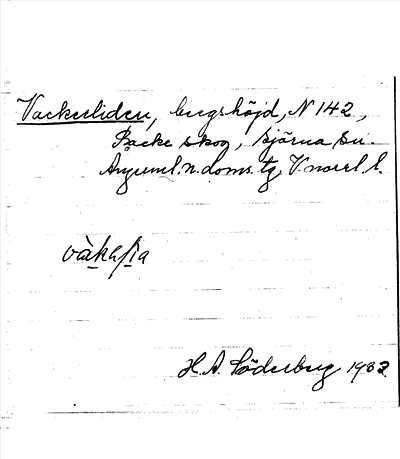 Vackerliden, bergshöjd, N 142,
Backe skog, Björna sn.
Ångerml. n. doms. tg, V. norrl. l.
H. A. Söderberg 1932